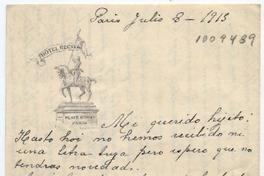 Paris Julio 8-1913
1009489
HÔTEL REGINA
PARIS
Mi querido hijito:
Hasta hoi no hemos recibido ni
una letra tuya pero espero que no
tendras novedad.